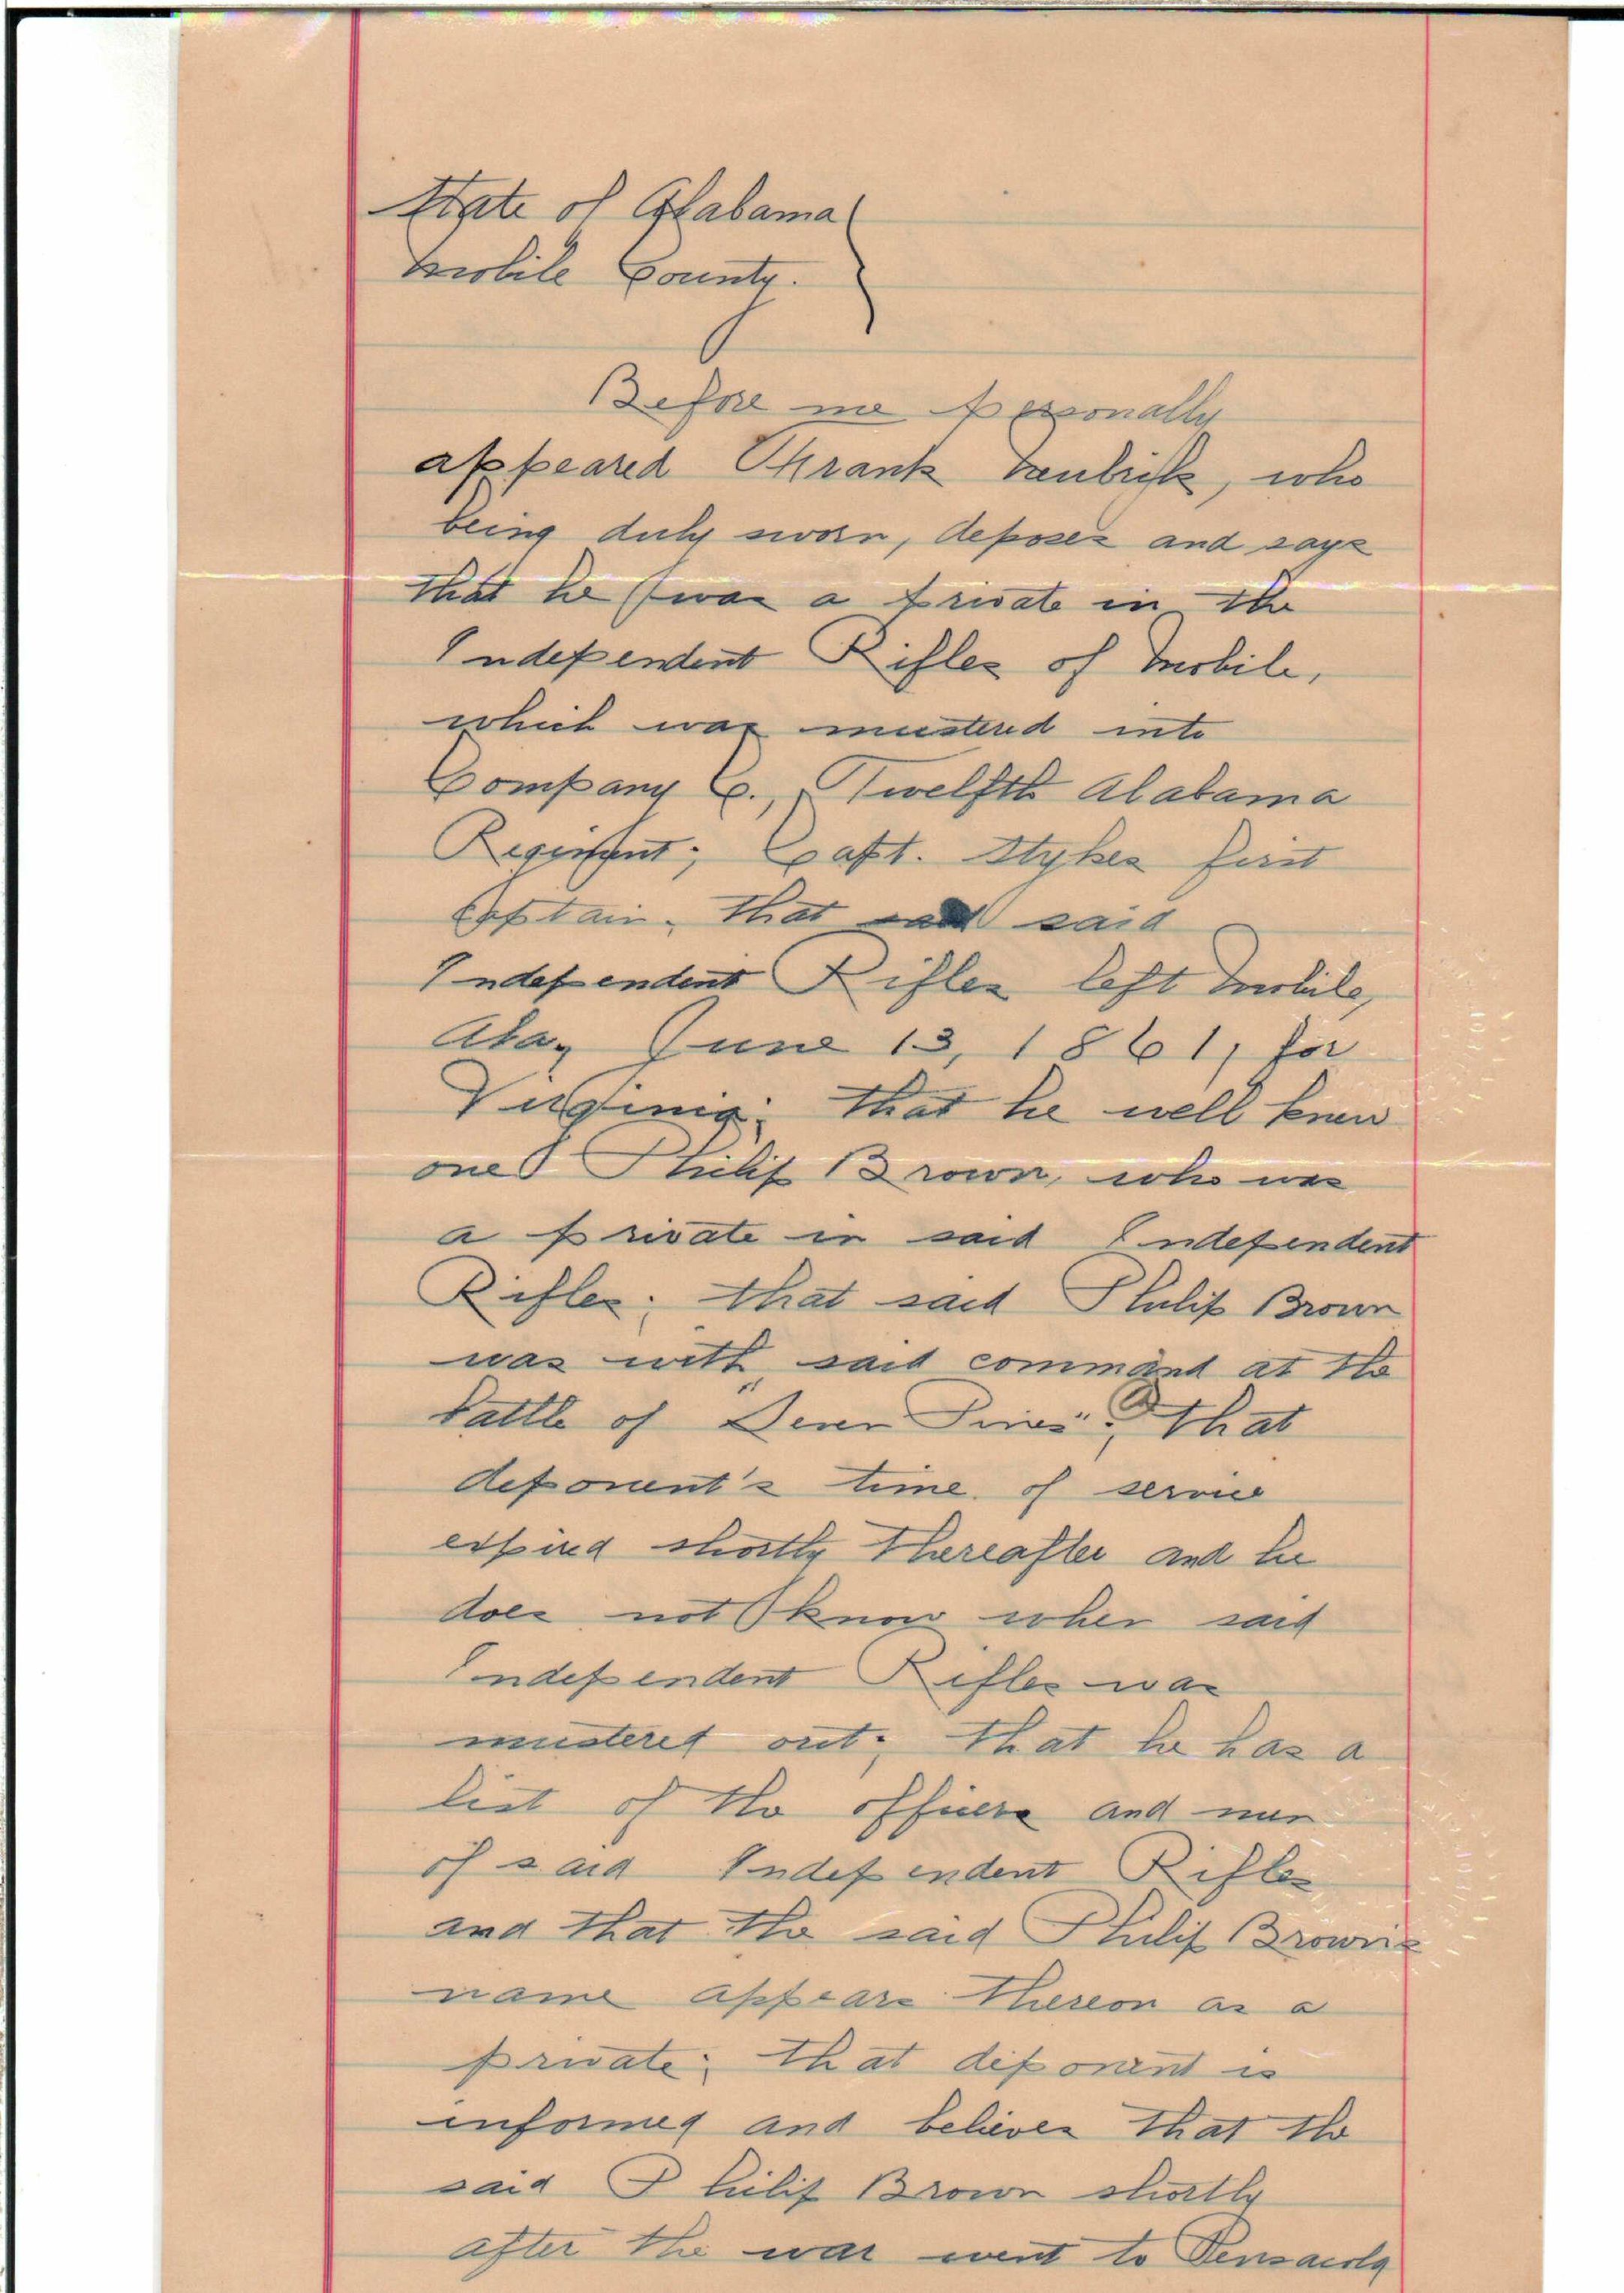 State of Alabama
Mobile County.
Before me personally
appeared Frank, who
being duly sworn, deposes and says
that he was a private in the
Independent Rifles of Mobile,
which was mustered into
Company C., Twelfth Alabama
Regiment; Capt. Stykes first
Captain. that said
Independent Rifles left Mobile,
Ala, June 13, 1861, for
Virginia; that he well knew
one Philip Brown, who was
a private in said Independent
Rifles; that said Philip Brown
was with said command at the
battle of "Seven Pines"; that
deponent's time of service
expired shortly thereafter and he
does not know when said
Independent Rifles was
mustered out; that he has a
list of the officers and men
of said Independent Rifles
and that the said Philip Brown's
name appears thereon as a
private; that deponent is
informed and believes that the
said Philip Brown shortly
after the war went to Pensacola